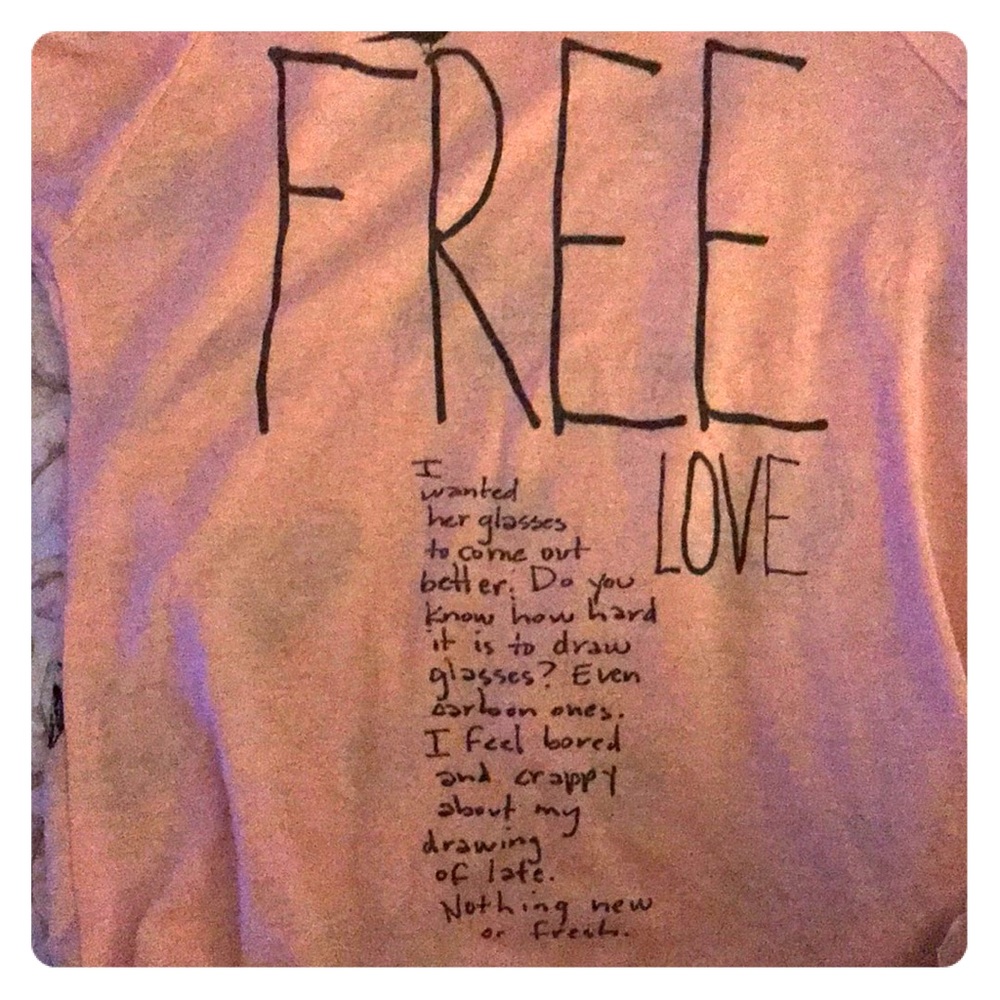 FREE
LOVE
I
wanted
her glasses
to come out
better. Do you
know how hard
it is to draw
glasses? Even
cartoon ones.
I feel bored
and crappy
about my
drawing
of late.
Nothing new
or fresh.